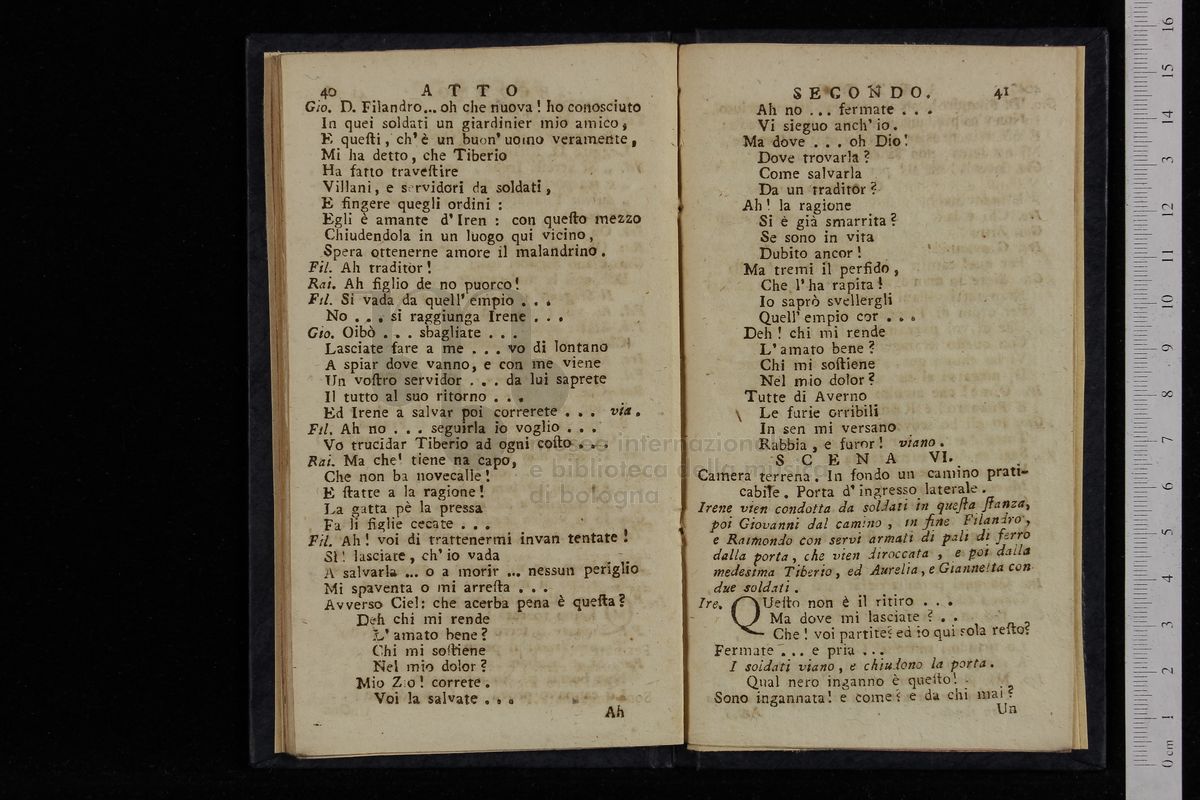 40 ATTO
Gio. D. Filandro... oh che nuova! ho conosciuto
In quei soldati un giardinier mio amico,
E queſti, ch'è un buon'uomo veramente,
Mi ha detto, che Tiberio
Ha fatto traveſtire
Villani, e servidori da soldati,
E fingere quegli ordini :
Egli è amante d'Iren : con queſto mezzo
Chiudendola in un luogo qui vicino,
Spera ottenerne amore il malandrino.
Fil. Ah traditor!
Rai. Ah figlio de no puorco!
Fil. Si vada da quell'empio . . .
No . . . si raggiunga Irene . . .
Gio. Oibò . . . sbagliate . . .
Lasciate fare a me . . . vo di lontano
A spiar dove vanno, e con me viene
Un voſtro servidor . . . da lui saprete
Il tutto al suo ritorno . . .
Ed Irene a salvar poi correrete . . . via.
Fil. Ah no . . . seguirla io voglio . . .
Vo trucidar Tiberio ad ogni coſto . . .
Rai. Ma che! tiene na capo,
Che non ba novecalle!
E ſtatte a la ragione!
La gatta pè la pressa
Fa li figlie cecate . . .
Fil. Ah! voi di trattenermi invan tentate!
Sì! lasciate, ch'io vada
A salvarla ... o a morir ... nessun periglio
Mi spaventa o mi arreſta . . .
Avverso Ciel: che acerba pena è queſta?
Deh chi mi rende
L'amato bene?
Chi mi soſtiene
Nel mio dolor?
Mio Zio! correte.
Voi la salvate . . .
Ah
SECONDO. 41
Ah no . . . fermate . . .
Vi sieguo anch'io.
Ma dove . . . oh Dio!
Dove trovarla?
Come salvarla
Da un traditor?
Ah! la ragione
Si è già smarrita?
Se sono in vita
Dubito ancor!
Ma tremi il perfido,
Che l'ha rapita!
Io saprò svellergli
Quell'empio cor . . .
Deh! chi mi rende
L'amato bene?
Chi mi soſtiene
Nel mio dolor?
Tutte di Averno
Le furie orribili
In sen mi versano
Rabbia, e furor! viano.
SCENA VI.
Camera terrena. In fondo un camino prati-
cabile. Porta d'ingresso laterale.
Irene vien condotta da soldati in queſta ſtanza,
poi Giovanni dal camino, in fine Filandro,
e Raimondo con servi armati di pali di ferro
dalla porta, che vien diroccata, e poi dalla
medesima Tiberio, ed Aurelia, e Giannetta con
due soldati.
Ire. QUeſto non è il ritiro . . .
Ma dove mi lasciate ? . .
Che! voi partite? ed io qui sola reſto?
Fermate . . . e pria . . .
I soldati viano, e chiudono la porta.
Qual nero inganno è queſto!
Sono ingannata! e come? e da chi mai?
Un
internazionale
e biblioteca della musica
di bologna
0 cm 1 2 3 4 5 6 7 8 9 10 11 12 13 14 15 16